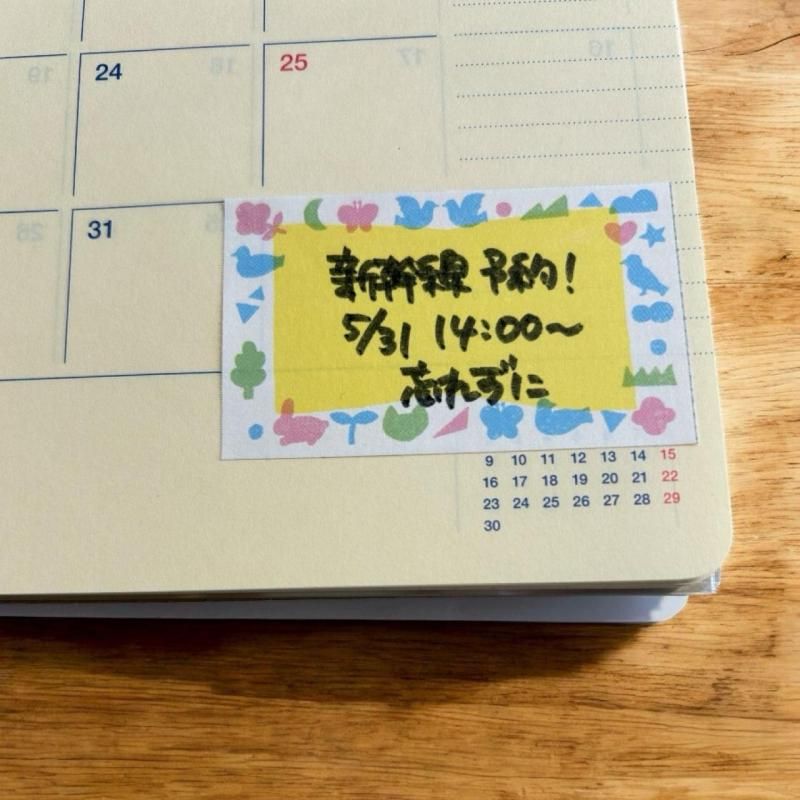 24 25
31
新幹線 予約!
5/31 14:00〜
忘れずに
9 10 11 12 13 14 15
16 17 18 19 20 21 22
23 24 25 26 27 28 29
30